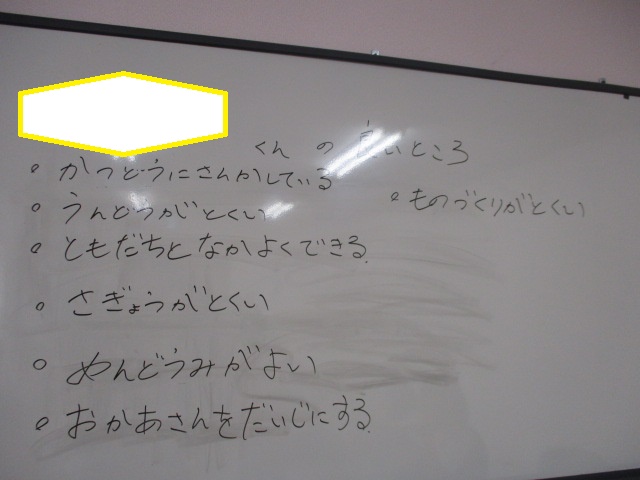 くん の 良いところ
かつどうにさんかしている
うんどうがとくい
ともだちとなかよくできる
さぎょうがとくい
めんどうみがよい
おかあさんをだいじにする
ものづくりがとくい